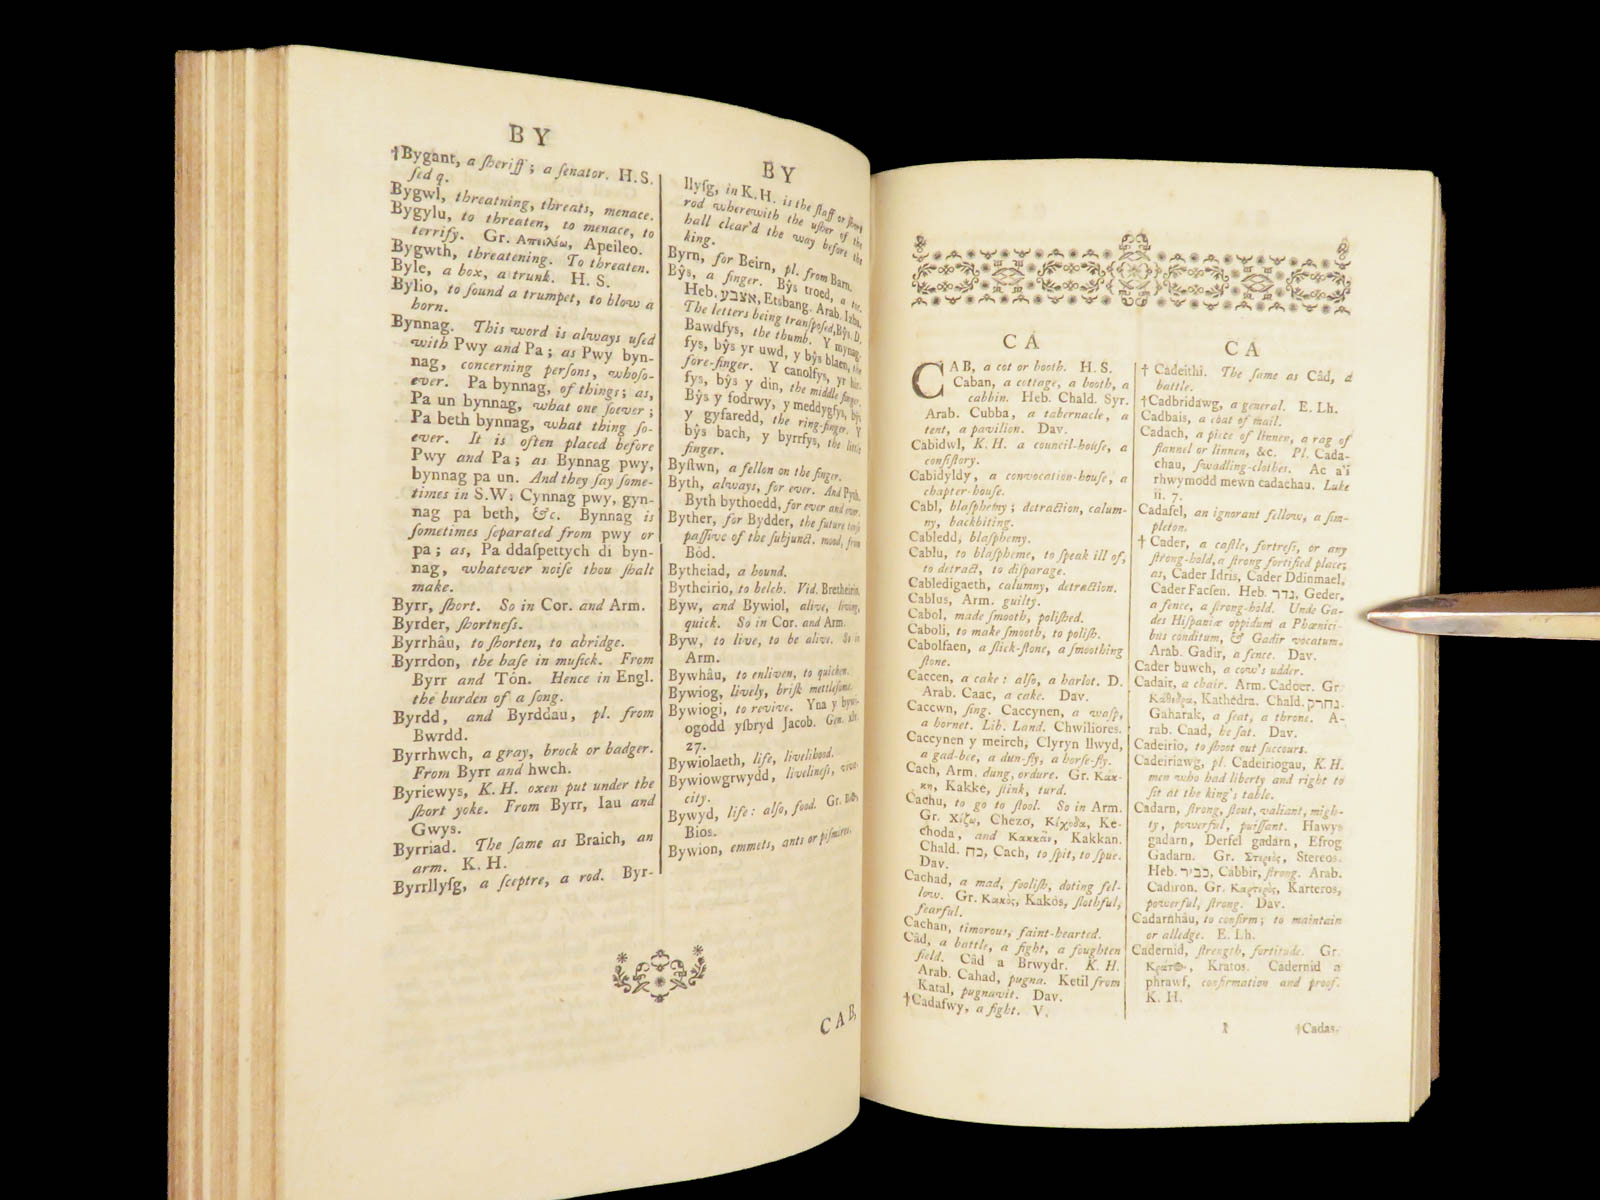 BY
†Bygant, a ſheriff; a ſenator. H. S.
ſed q.
Bygwl, threatning, threats, menace.
Bygylu, to threaten, to menace, to
terrify. Gr. Απειλέω, Apeileo.
Bygwth, threatening. To threaten.
Byle, a box, a trunk. H. S.
Bylio, to ſound a trumpet, to blow a
horn.
Bynnag. This word is always uſed
with Pwy and Pa; as Pwy byn-
nag, concerning perſons, whoſo-
ever. Pa bynnag, of things; as,
Pa un bynnag, what one ſoever;
Pa beth bynnag, what thing ſo-
ever. It is often placed before
Pwy and Pa; as Bynnag pwy,
bynnag pa un. And they ſay ſome-
times in S.W. Cynnag pwy, gyn-
nag pa beth, &c. Bynnag is
ſometimes ſeparated from pwy or
pa; as, Pa ddaſpettych di byn-
nag, whatever noiſe thou ſhalt
make.
Byrr, ſhort. So in Cor. and Arm.
Byrder, ſhortneſs.
Byrrhâu, to ſhorten, to abridge.
Byrrdon, the baſe in muſick. From
Byrr and Tôn. Hence in Engl.
the burden of a ſong.
Byrdd, and Byrddau, pl. from
Bwrdd.
Byrrhwch, a gray, brock or badger.
From Byrr and hwch.
Byriewys, K. H. oxen put under the
ſhort yoke. From Byrr, Iau and
Gwys.
Byrriad. The ſame as Braich, an
arm. K. H.
Byrrllyſg, a ſceptre, a rod. Byr-
BY
llyſg, in K. H. is the ſtaff or ſhort
rod wherewith the uſher of the
hall clear'd the way before the
king.
Byrn, for Beirn, pl. from Barn.
Bŷs, a finger. Bŷs troed, a toe.
Heb. אצבע, Etsbang. Arab. Izba.
The letters being tranſpoſed, Bŷs. D.
Bawdfys, the thumb. Y mynag-
fys, bŷs yr uwd, y bŷs blaen, the
fore-finger. Y canolfys, yr hir-
fys, bŷs y din, the middle finger.
Bŷs y fodrwy, y meddygfys, bŷs
y gyfaredd, the ring-finger. Y
bŷs bach, y byrrfys, the little
finger.
Byſtwn, a fellon on the finger.
Byth, always, for ever. And Pyth.
Byth bythoedd, for ever and ever.
Byther, for Bydder, the future tenſe
paſſive of the ſubjunct. mood, from
Bôd.
Bytheiad, a hound.
Bytheirio, to belch. Vid. Bretheirio.
Byw, and Bywiol, alive, living,
quick. So in Cor. and Arm.
Byw, to live, to be alive. So in
Arm.
Bywhâu, to enliven, to quicken.
Bywiog, lively, briſk mettleſome.
Bywiogi, to revive. Yna y bywi-
ogodd yſbryd Jacob. Gen. xlv.
27.
Bywiolaeth, life, livelihood.
Bywiowgrwydd, livelineſs, viva-
city.
Bywyd, life: alſo, food. Gr. Βίος,
Bios.
Bywion, emmets, ants or piſmires.
CAB,
CA
CAB, a cot or booth. H. S.
Caban, a cottage, a booth, a
cabbin. Heb. Chald. Syr.
Arab. Cubba, a tabernacle, a
tent, a pavilion. Dav.
Cabidwl, K. H. a council-houſe, a
conſiſtory.
Cabidyldy, a convocation-houſe, a
chapter-houſe.
Cabl, blaſphemy; detraction, calum-
ny, backbiting.
Cabledd, blaſphemy.
Cablu, to blaſpheme, to ſpeak ill of,
to detract, to diſparage.
Cabledigaeth, calumny, detraction.
Cablus, Arm. guilty.
Cabol, made ſmooth, poliſhed.
Caboli, to make ſmooth, to poliſh.
Cabolfaen, a ſlick-ſtone, a ſmoothing
ſtone.
Caccen, a cake: alſo, a harlot. D.
Arab. Caac, a cake. Dav.
Caccwn, ſing. Caccynen, a waſp,
a hornet. Lib. Land. Chwiliores.
Caccynen y meirch, Clyryn llwyd,
a gad-bee, a dun-fly, a horſe-fly.
Cach, Arm. dung, ordure. Gr. Κακ-
κη, Kakke, ſtink, turd.
Cachu, to go to ſtool. So in Arm.
Gr. Χέζω, Chezo, Κέχοδα, Ke-
choda, and Κακκᾶν, Kakkan.
Chald. כח, Cach, to ſpit, to ſpue.
Dav.
Cachad, a mad, fooliſh, doting fel-
low. Gr. Κακὸς, Kakos, ſlothful,
fearful.
Cachan, timorous, faint-hearted.
Câd, a battle, a fight, a foughten
field. Câd a Brwydr. K. H.
Arab. Cahad, pugna. Ketil from
Katal, pugnavit. Dav.
†Cadafwy, a fight. V.
CA
† Cadeithi. The ſame as Câd, a
battle.
†Cadbridawg, a general. E. Lh.
Cadbais, a coat of mail.
Cadach, a piece of linnen, a rag of
flannel or linnen, &c. Pl. Cada-
chau, ſwadling-clothes. Ac a'i
rhwymodd mewn cadachau. Luke
ii. 7.
Cadafel, an ignorant fellow, a ſim-
pleton.
† Cader, a caſtle, fortreſs, or any
ſtrong-hold, a ſtrong fortified place;
as, Cader Idris, Cader Ddinmael,
Cader Facſen. Heb. גדר, Geder,
a fence, a ſtrong-hold. Unde Ga-
des Hiſpaniæ oppidum a Phœnici-
bus conditum, & Gadir vocatum.
Arab. Gadir, a fence. Dav.
Cader buwch, a cow's udder.
Cadair, a chair. Arm. Cadoer. Gr.
Καθέδρα, Kathedra. Chald. גהרק,
Gaharak, a ſeat, a throne. A-
rab. Caad, he ſat. Dav.
Cadeirio, to ſhoot out ſuccours.
Cadeiriawg, pl. Cadeiriogau, K. H.
men who had liberty and right to
ſit at the king's table.
Cadarn, ſtrong, ſtout, valiant, migh-
ty, powerful, puiſſant. Hawys
gadarn, Derfel gadarn, Efrog
Gadarn. Gr. Στεριὸς, Stereos.
Heb. כביר, Cabbir, ſtrong. Arab.
Cadiron. Gr. Καρτερὸς, Karteros,
powerful, ſtrong. Dav.
Cadarnhâu, to confirm; to maintain
or alledge. E. Lh.
Cadernid, ſtrength, fortitude. Gr.
Κράτος, Kratos. Cadernid a
phrawf, confirmation and proof.
K. H.
I †Cadas.